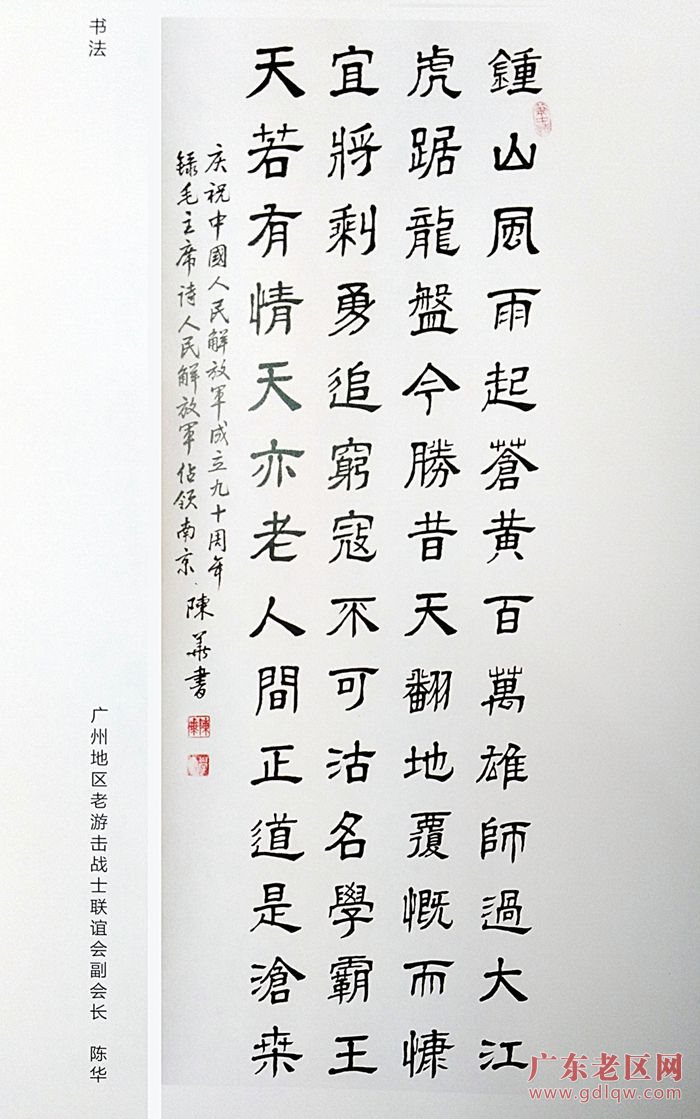 鍾山風雨起蒼黄百萬雄師過大江
虎踞龍盤今勝昔天翻地覆慨而慷
宜將剩勇追窮寇不可沽名學霸王
天若有情天亦老人間正道是滄桒
庆祝中國人民解放軍成立九十周年
録毛主席诗人民解放軍佔领南京.陳華書
书法
广州地区老游击战士联谊会副会长 陈华
广东老区网
www.gdlqw.com